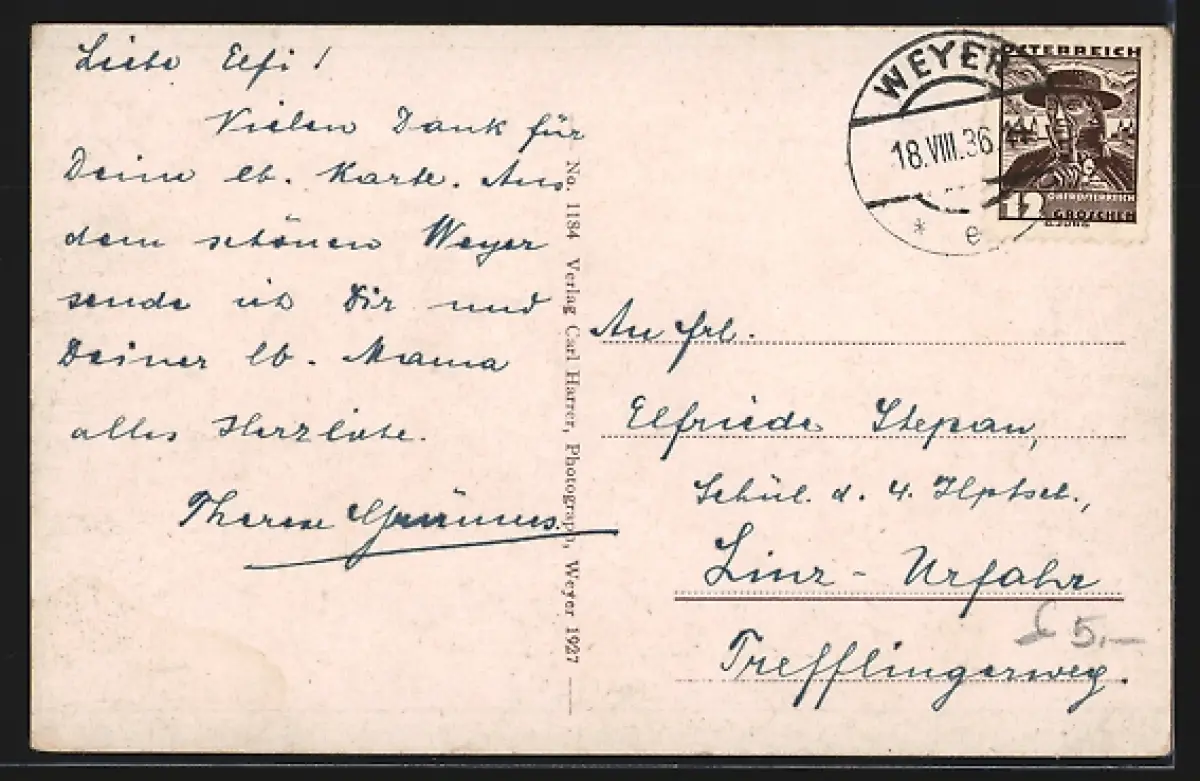 Liebe Elfi!
Vielen Dank für
Deine lb. Karte. Aus
dem schönen Weyer
sende ich Dir und
Deiner lb. Mama
alles Herzliche.
Therese
No. 1184 Verlag Carl Harrer, Photograph, Weyer 1927
WEYER
18.VIII.36
* e
ÖSTERREICH
OBERÖSTERREICH
12 GROSCHEN
G.JUNG
An Frl.
Elfriede Stepan,
Schül. d. 4. Hptsch.,
Linz - Urfahr
5.–
Trefflingerweg.